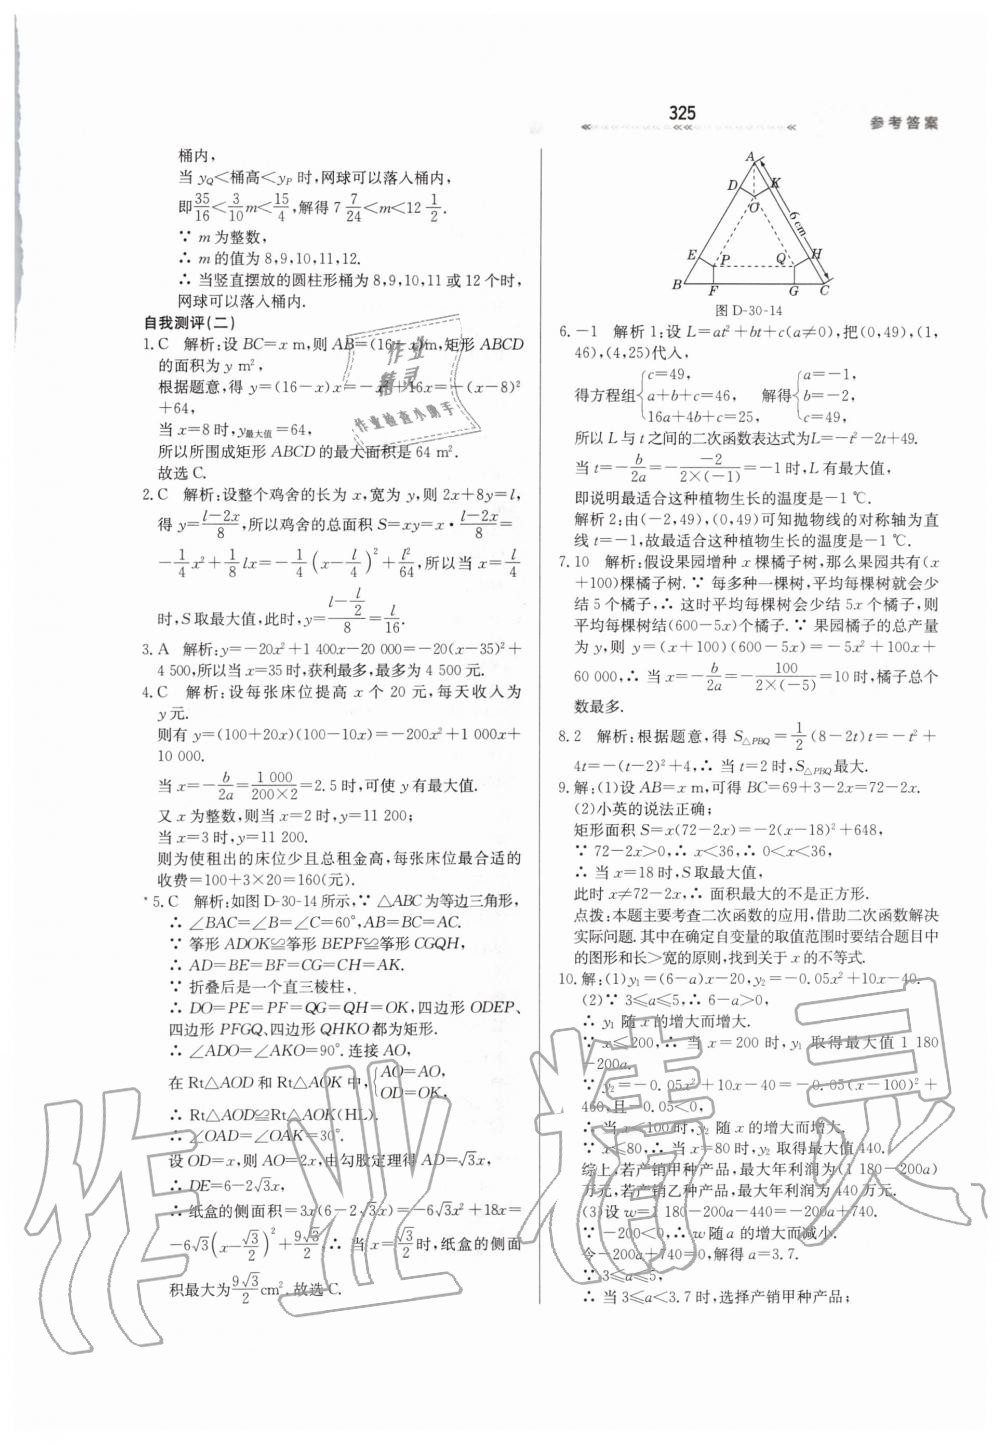 325
参考答案
桶内,
当 y_Q＜桶高＜y_P 时,网球可以落入桶内,
即35/16＜3/10 m＜15/4,解得 7 7/24＜m＜12 1/2.
∵ m 为整数,
∴ m 的值为 8,9,10,11,12.
∴ 当竖直摆放的圆柱形桶为 8,9,10,11 或 12 个时,
网球可以落入桶内.
自我测评(二)
1.C 解析:设 BC=x m,则 AB=(16-x)m,矩形 ABCD
的面积为 y m²,
根据题意,得 y=(16-x)x=-x²+16x=-(x-8)²
+64,
当 x=8 时,y最大值=64,
所以所围成矩形 ABCD 的最大面积是 64 m².
故选 C.
2.C 解析:设整个鸡舍的长为 x,宽为 y,则 2x+8y=l,
得 y=(l-2x)/8,所以鸡舍的总面积 S=xy=x·(l-2x)/8=
-1/4 x²+1/8 lx=-1/4(x-l/4)²+l²/64,所以当 x=l/4
时,S 取最大值,此时,y=(l-l/2)/8=l/16.
3.A 解析:y=-20x²+1 400x-20 000=-20(x-35)²+
4 500,所以当 x=35 时,获利最多,最多为 4 500 元.
4.C 解析:设每张床位提高 x 个 20 元,每天收入为
y 元.
则有 y=(100+20x)(100-10x)=-200x²+1 000x+
10 000.
当 x=-b/2a=1 000/(200×2)=2.5 时,可使 y 有最大值.
又 x 为整数,则当 x=2 时,y=11 200;
当 x=3 时,y=11 200.
则为使租出的床位少且总租金高,每张床位最合适的
收费=100+3×20=160(元).
*5.C 解析:如图 D-30-14 所示,∵ △ABC 为等边三角形,
∴ ∠BAC=∠B=∠C=60°,AB=BC=AC.
∵ 筝形 ADOK≌筝形 BEPF≌筝形 CGQH,
∴ AD=BE=BF=CG=CH=AK.
∵ 折叠后是一个直三棱柱,
∴ DO=PE=PF=QG=QH=OK,四边形 ODEP、
四边形 PFGQ、四边形 QHKO 都为矩形.
∴ ∠ADO=∠AKO=90°.连接 AO,
在 Rt△AOD 和 Rt△AOK 中,{AO=AO, OD=OK.
∴ Rt△AOD≌Rt△AOK(HL).
∴ ∠OAD=∠OAK=30°.
设 OD=x,则 AO=2x,由勾股定理得 AD=√3x,
∴ DE=6-2√3x,
∴纸盒的侧面积=3x(6-2√3x)=-6√3x²+18x=
-6√3(x-√3/2)²+9√3/2,∴ 当 x=√3/2时,纸盒的侧面
积最大为9√3/2 cm².故选 C.
A
D
K
O
6 cm
E
P
Q
H
B
F
G
C
图 D-30-14
6.-1 解析 1:设 L=at²+bt+c(a≠0),把(0,49),(1,
46),(4,25)代入,
得方程组{c=49, a+b+c=46, 16a+4b+c=25, 解得{a=-1, b=-2, c=49.
所以 L 与 t 之间的二次函数表达式为L=-t²-2t+49.
当 t=-b/2a=--2/(2×(-1))=-1 时,L 有最大值,
即说明最适合这种植物生长的温度是-1 ℃.
解析 2:由(-2,49),(0,49)可知抛物线的对称轴为直
线 t=-1,故最适合这种植物生长的温度是-1 ℃.
7.10 解析:假设果园增种 x 棵橘子树,那么果园共有(x
+100)棵橘子树.∵ 每多种一棵树,平均每棵树就会少
结 5 个橘子,∴ 这时平均每棵树会少结 5x 个橘子,则
平均每棵树结(600-5x)个橘子.∵ 果园橘子的总产量
为 y,则 y=(x+100)(600-5x)=-5x²+100x+
60 000,∴ 当 x=-b/2a=-100/(2×(-5))=10 时,橘子总个
数最多.
8.2 解析:根据题意,得 S△PBQ=1/2(8-2t)t=-t²+
4t=-(t-2)²+4,∴ 当 t=2 时,S△PBQ最大.
9.解:(1)设 AB=x m,可得 BC=69+3-2x=72-2x.
(2)小英的说法正确;
矩形面积 S=x(72-2x)=-2(x-18)²+648,
∵ 72-2x>0,∴ x<36,∴ 0<x<36,
∴ 当 x=18 时,S 取最大值,
此时 x≠72-2x,∴ 面积最大的不是正方形.
点拨:本题主要考查二次函数的应用,借助二次函数解决
实际问题.其中在确定自变量的取值范围时要结合题目中
的图形和长>宽的原则,找到关于 x 的不等式.
10.解:(1)y₁=(6-a)x-20,y₂=-0.05x²+10x-40.
(2)∵ 3≤a≤5,∴ 6-a>0,
∴ y₁ 随 x 的增大而增大.
∵ x≤200,∴ 当 x=200 时,y₁ 取得最大值 1 180
-200a.
∵ y₂=-0.05x²+10x-40=-0.05(x-100)²+
460,且-0.05<0,
∴ 当 x<100 时,y₂ 随 x 的增大而增大.
∵ x≤80,∴ 当 x=80 时,y₂ 取得最大值 440.
综上,若产销甲种产品,最大年利润为(1 180-200a)
万元,若产销乙种产品,最大年利润为 440 万元.
(3)设 w=1 180-200a-440=-200a+740.
∵ -200<0,∴ w 随 a 的增大而减小.
令-200a+740=0,解得 a=3.7.
∵ 3≤a≤5,
∴ 当 3≤a<3.7 时,选择产销甲种产品;
作业
精灵
作业检查小助手
作业精灵